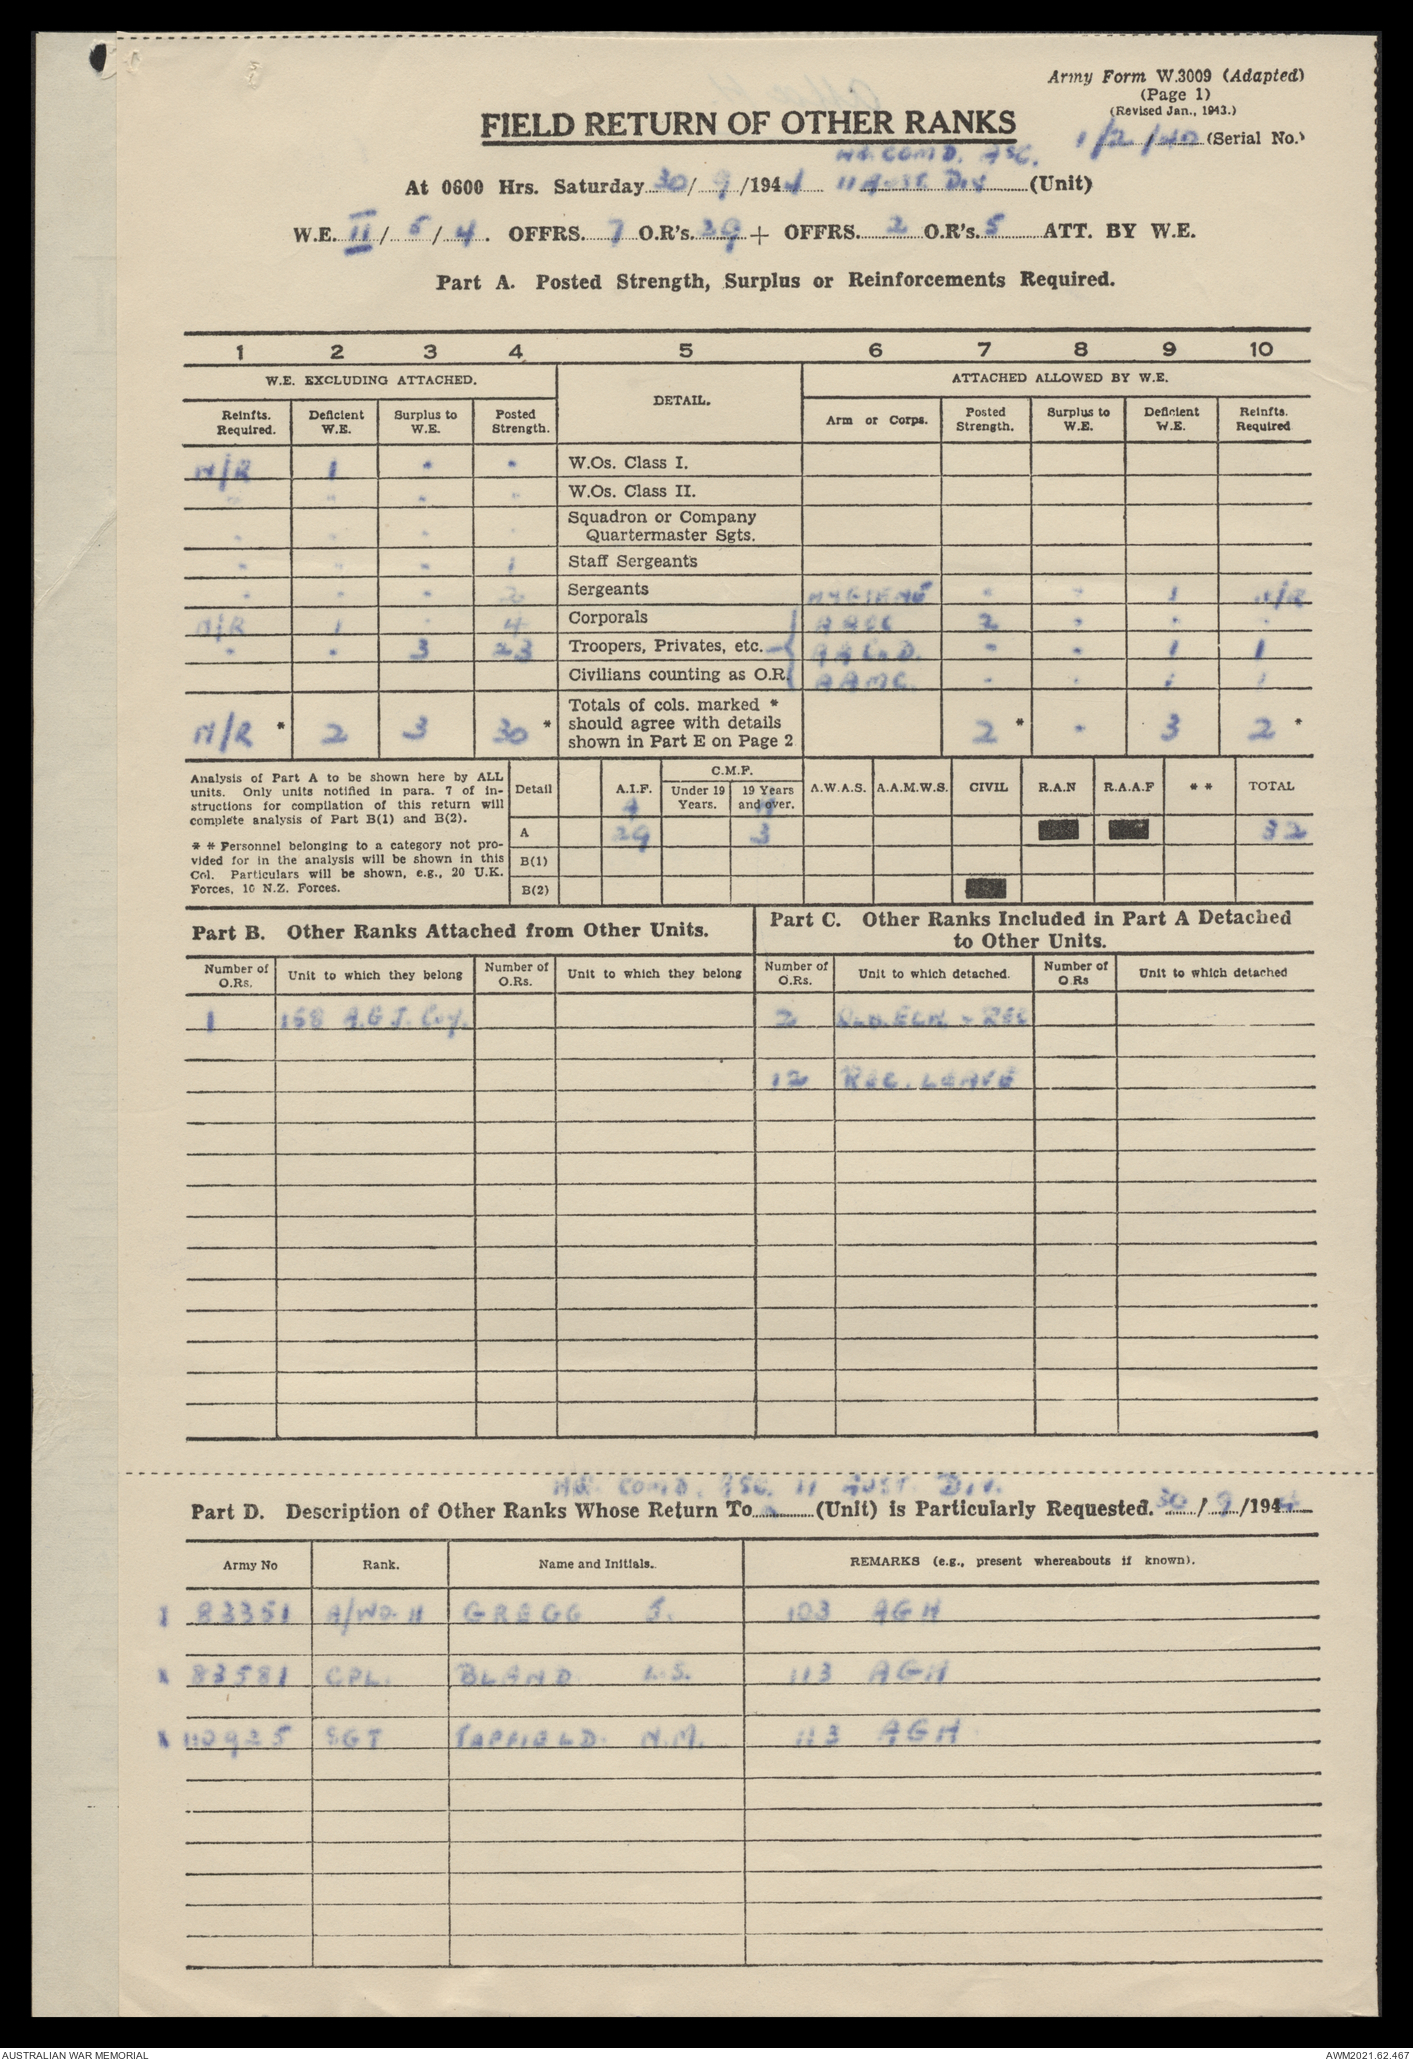 Army Form W.3009 (Adapted)
(Page 1)
(Revised Jan., 1943.)
FIELD RETURN OF OTHER RANKS
1/2/40 (Serial No.)
HQ. COMD. ASC.
At 0600 Hrs. Saturday 30/9/1944 11 AUST. DIV (Unit)
W.E. II/5/4. OFFRS. 7 O.R's. 29 + OFFRS. 2 O.R's. 5 ATT. BY W.E.
Part A. Posted Strength, Surplus or Reinforcements Required.
1 2 3 4 5 6 7 8 9 10
W.E. EXCLUDING ATTACHED. DETAIL. ATTACHED ALLOWED BY W.E.
Reinfts. Required. Deficient W.E. Surplus to W.E. Posted Strength. Arm or Corps. Posted Strength. Surplus to W.E. Deficient W.E. Reinfts. Required
N/R 1 " " W.Os. Class I.
" " " " W.Os. Class II.
" " " Squadron or Company
Quartermaster Sgts.
" " " 1 Staff Sergeants
" " " 2 Sergeants HYGIENE " " 1 N/R
N/R 1 " 4 Corporals AASC 2 " " "
" " 3 23 Troopers, Privates, etc. AACD. " " 1 1
Civilians counting as O.R. AAMC. " " 1 1
N/R * 2 3 30 * Totals of cols. marked *
should agree with details
shown in Part E on Page 2 2 * " 3 2 *
Analysis of Part A to be shown here by ALL
units. Only units notified in para. 7 of in-
structions for compilation of this return will
complete analysis of Part B(1) and B(2).
* * Personnel belonging to a category not pro-
vided for in the analysis will be shown in this
Col. Particulars will be shown, e.g., 20 U.K.
Forces, 10 N.Z. Forces.
Detail A.I.F. C.M.F. Under 19 Years. 19 Years and over. A.W.A.S. A.A.M.W.S. CIVIL R.A.N R.A.A.F * * TOTAL
A 29 3 32
B(1)
B(2)
Part B. Other Ranks Attached from Other Units.
Part C. Other Ranks Included in Part A Detached
to Other Units.
Number of O.Rs. Unit to which they belong Number of O.Rs. Unit to which they belong Number of O.Rs. Unit to which detached. Number of O.Rs Unit to which detached
1 168 A.G.T. Coy. 2 QLD. ECH. & REC
12 REC. LEAVE
HQ. COMD. ASC. 11 AUST. DIV.
Part D. Description of Other Ranks Whose Return To (Unit) is Particularly Requested. 30/9/1944
Army No Rank. Name and Initials. REMARKS (e.g., present whereabouts if known).
83351 A/WO. II GREGG J. 103 AGH
X 83581 CPL. BLAND L.S. 113 AGH
X SGT N.M. 113 AGH
AUSTRALIAN WAR MEMORIAL
AWM2021.62.467